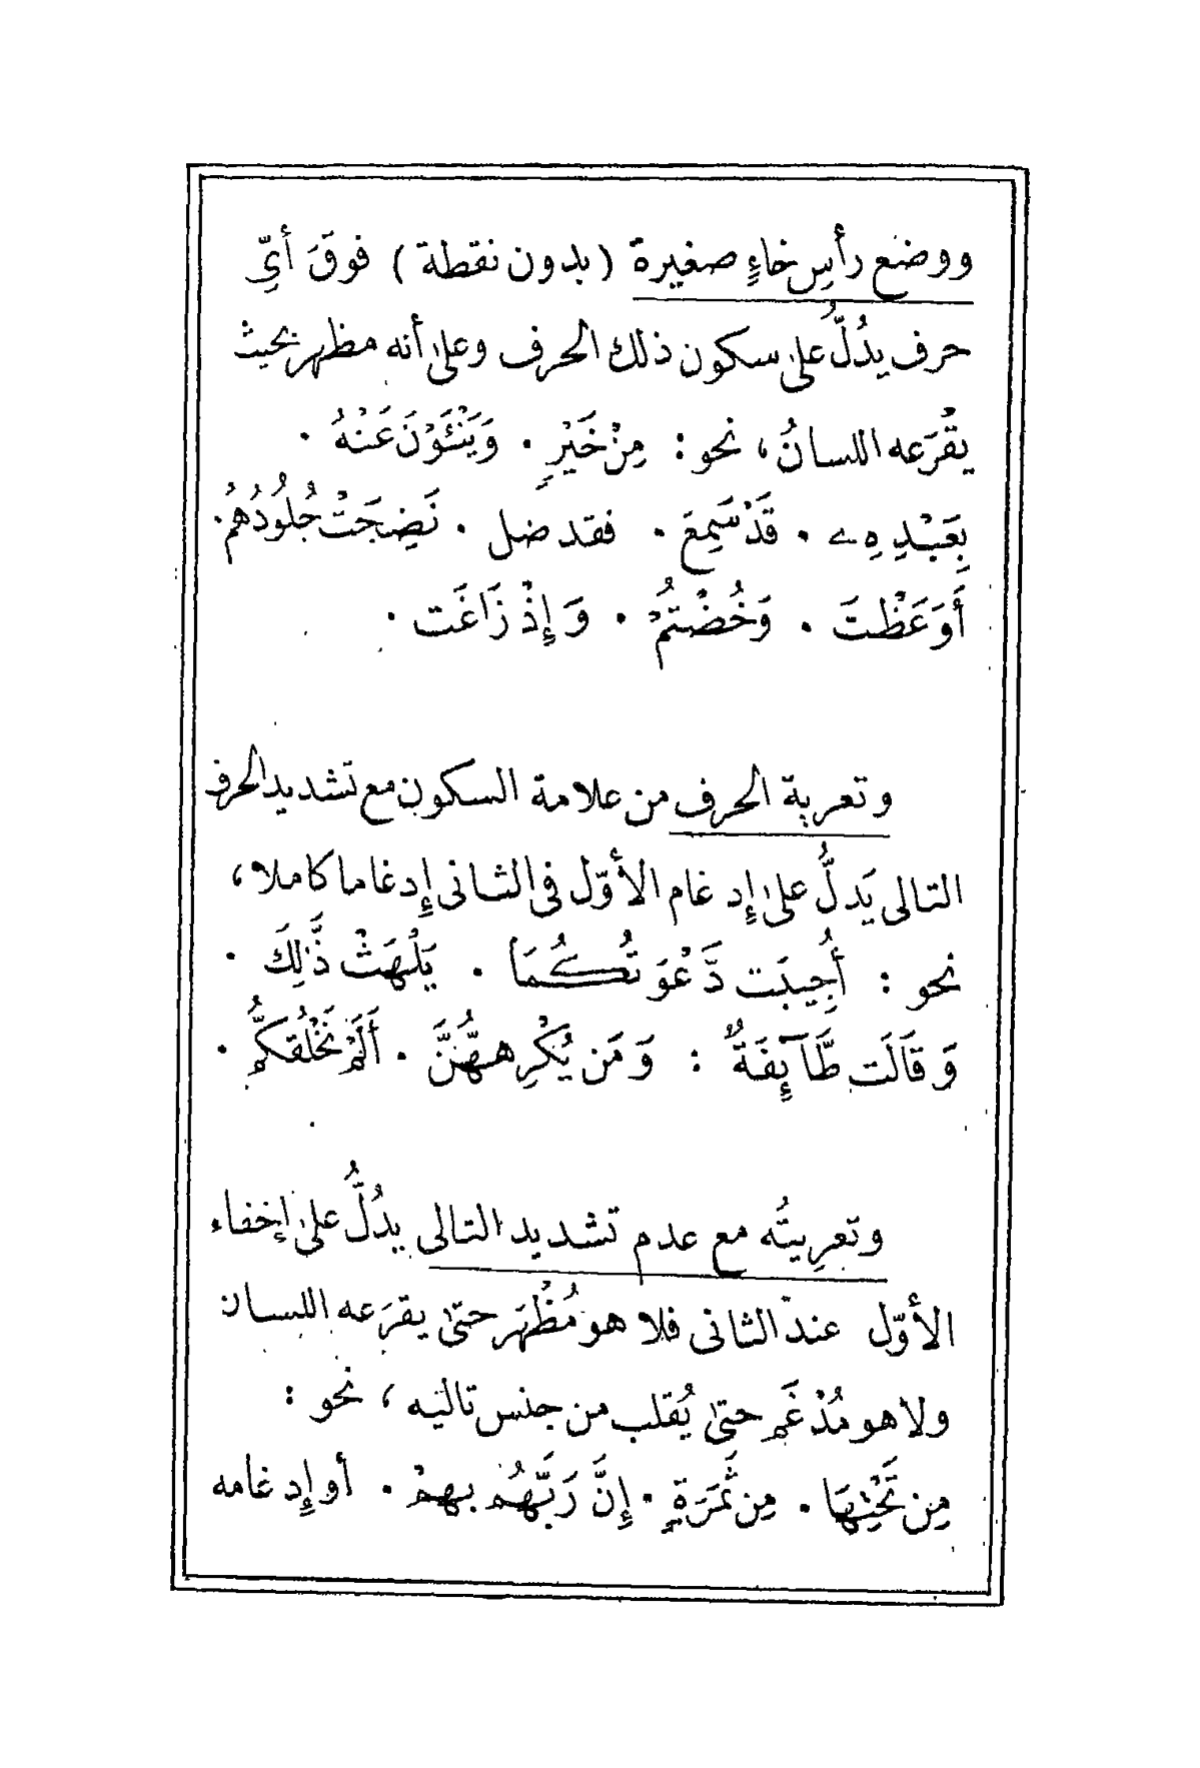 ووضع رأسِ خاءٍ صغيرة (بدون نقطة) فوقَ أىِّ
حرف يدُلُّ على سكون ذلك الحرف وعلى أنه مظهر بحيث
يقْرَعه اللسانُ، نحو: مِنْ خَيْرٍ . وَيَنْـَٔوْنَ عَنْهُ .
بِعَبْدِهِۦ . قَدْ سَمِعَ . فقد ضل . نَضِجَتْ جُلُودُهُمْ .
أَوَعَظْتَ . وَخُضْتُمْ . وَإِذْ زَاغَت .
وتعرية الحرف من علامة السكون مع تشديد الحرف
التالى يَدلُّ على إدغام الأوّل فى الثانى إدغاما كاملا،
نحو : أُجِيبَت دَّعْوَتُكُمَا . يَلْهَثْ ذَّٰلِكَ .
وَقَالَت طَّآئِفَةٌ : وَمَن يُكْرِههُّنَّ . أَلَمْ نَخْلُقكُّم .
وتعرِيتُه مع عدم تشديد التالى يدُلُّ على إخفاء
الأوّل عند الثانى فلا هو مُظْهَر حتىٰ يقرَعه اللسان
ولا هو مُدْغَم حتىٰ يُقلب من جنس تاليه، نحو :
مِن تَحْتِهَا . مِن ثَمَرَةٍ . إِنَّ رَبَّهُم بِهِمْ . أو إدغامه